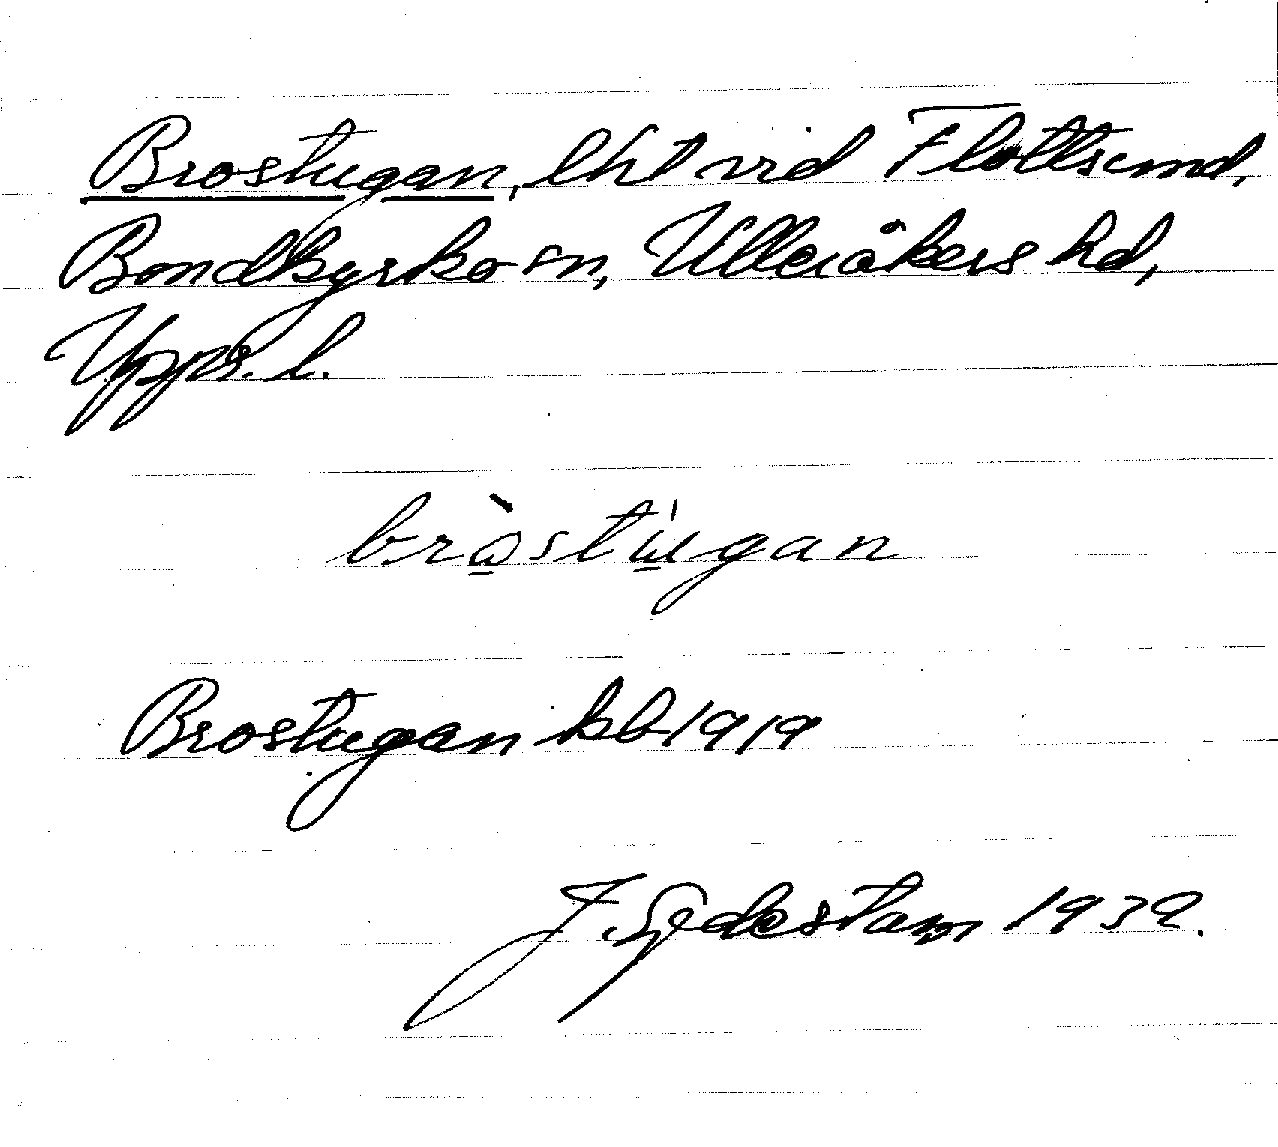 Brostugan, lht vid Flottsund,
Bondkyrko sn, Ulleråkers hd,
Upps. l.
bròstu̍gan
Brostugan kb 1919
J. Sjedestam 1939.